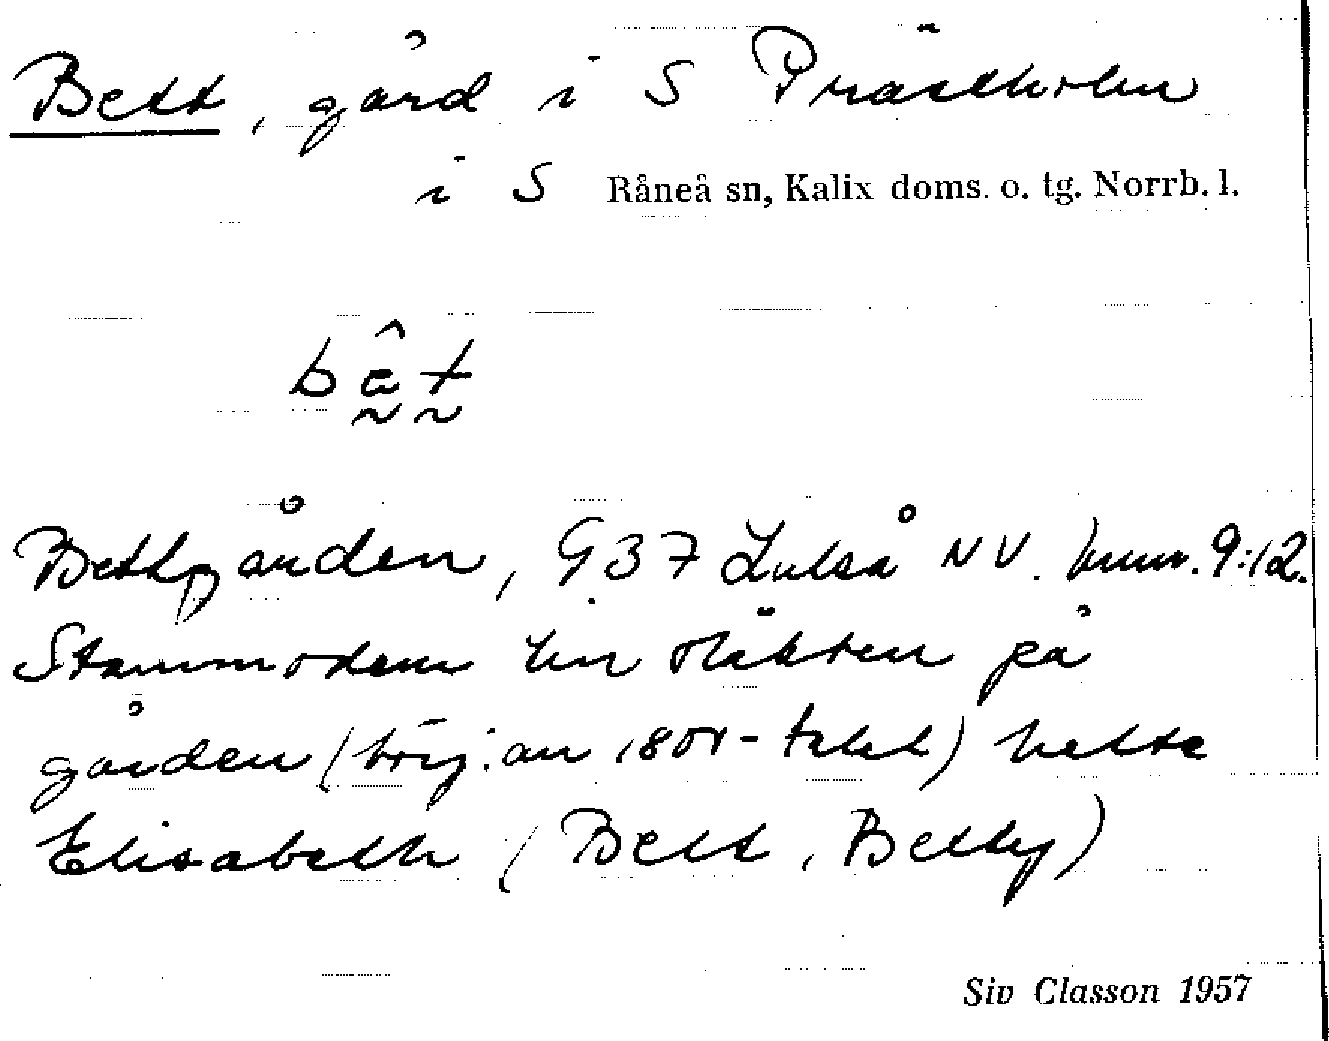 Bett, gård i S Prästholm
i S Råneå sn, Kalix doms. o. tg. Norrb. l.
bêt
Bettgården, G 37 Luleå NV. hmnr. 9:12.
Stammodern för släkten på
gården (börj. av 1800-talet) hette
Elisabeth (Bett, Betty)
Siv Classon 1957